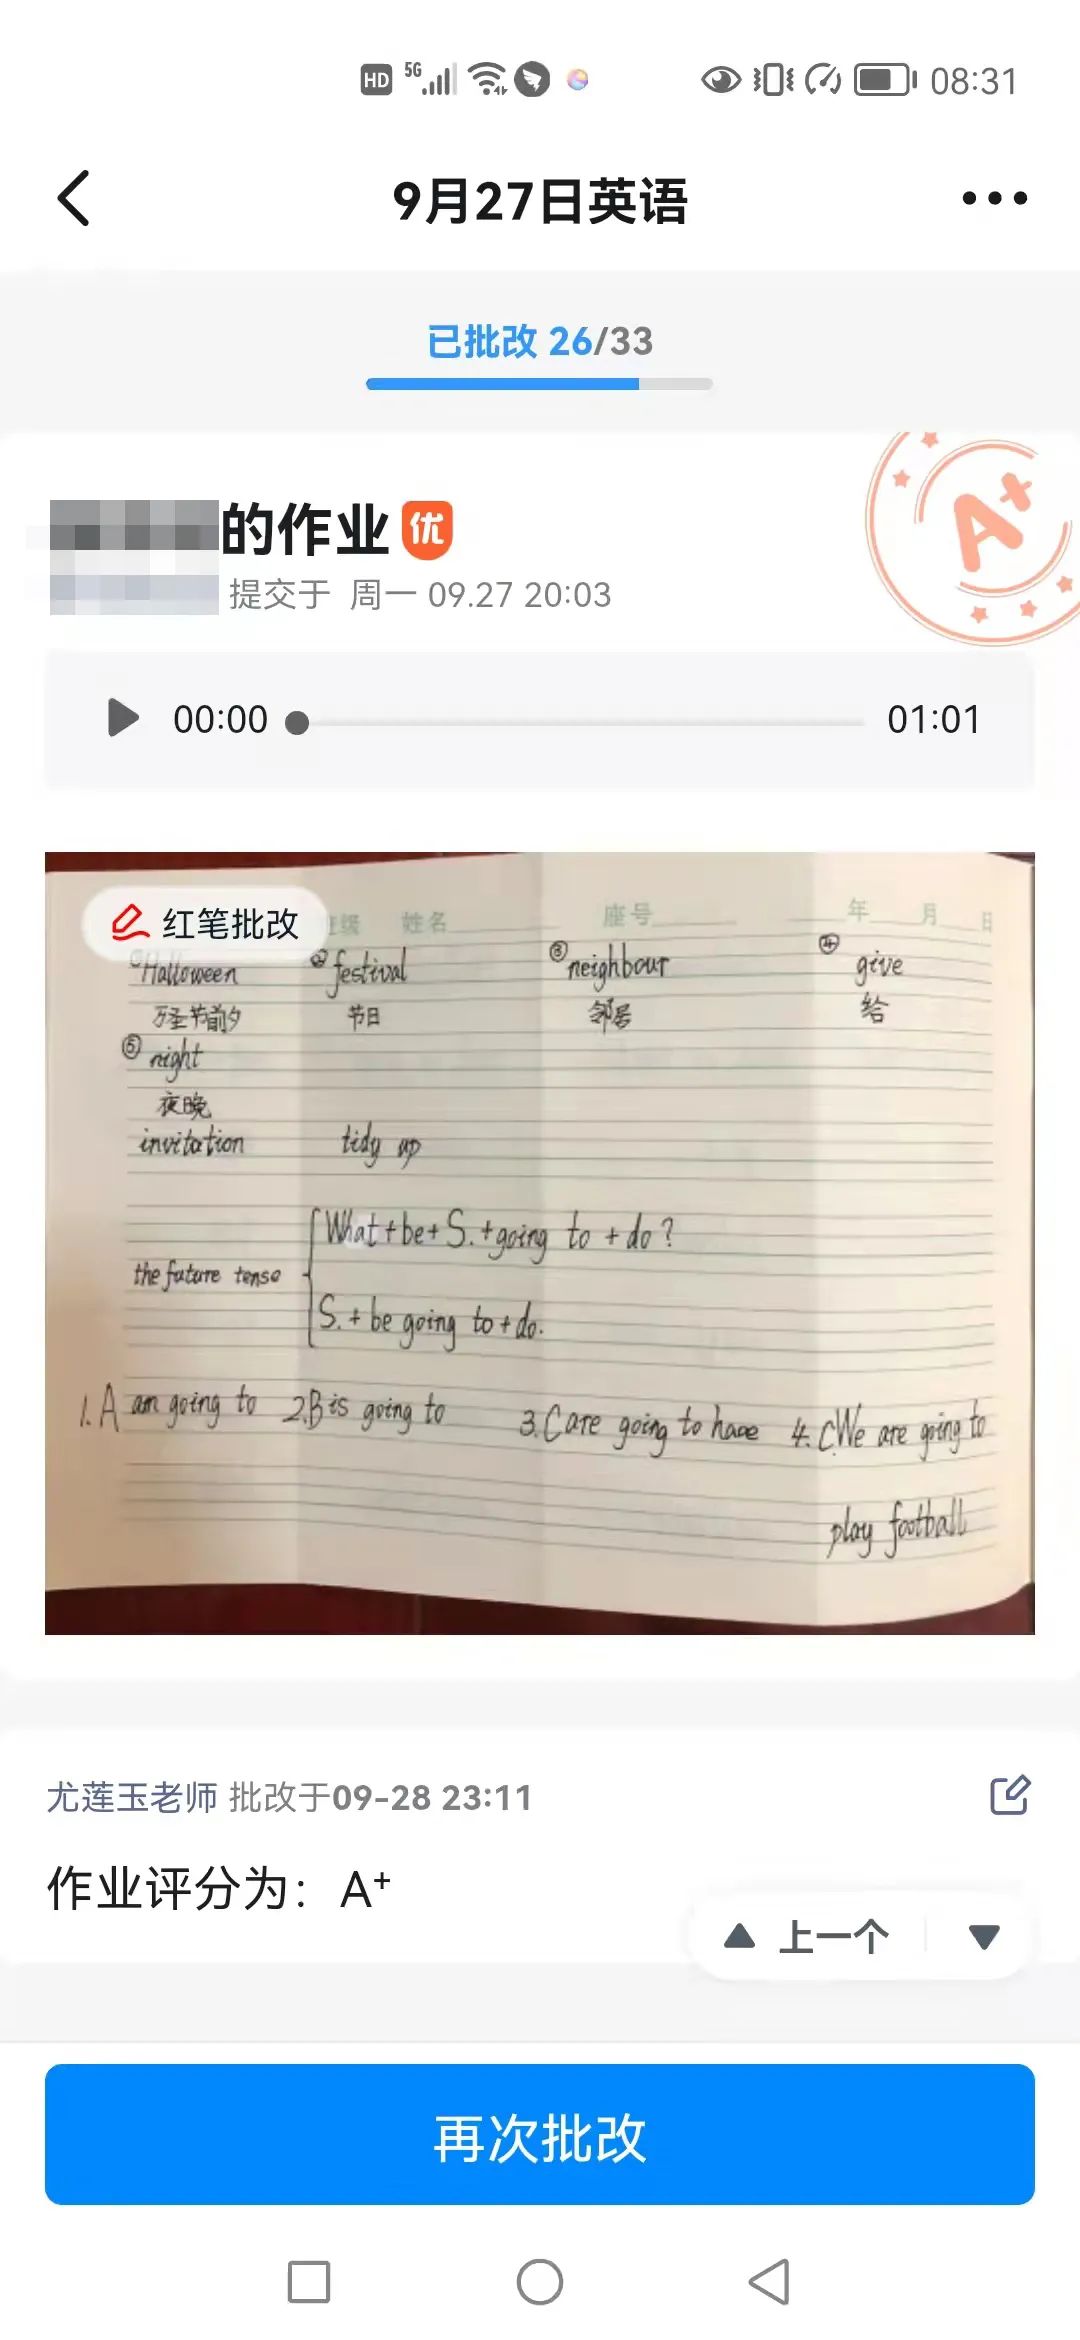 HD 5G 08:31
9月27日英语
已批改 26/33
的作业 优
A+
提交于 周一 09.27 20:03
00:00 01:01
红笔批改
班级 姓名 座号 年 月 日
①Halloween ②festival ③neighbour ④give
万圣节前夕 节日 邻居 给
⑤night
夜晚
invitation tidy up
What+be+S.+going to+do?
the future tense
S.+be going to+do.
1.A am going to 2.B is going to 3.C are going to have 4.C We are going to
play football
尤莲玉老师 批改于09-28 23:11
作业评分为：A+
上一个
再次批改